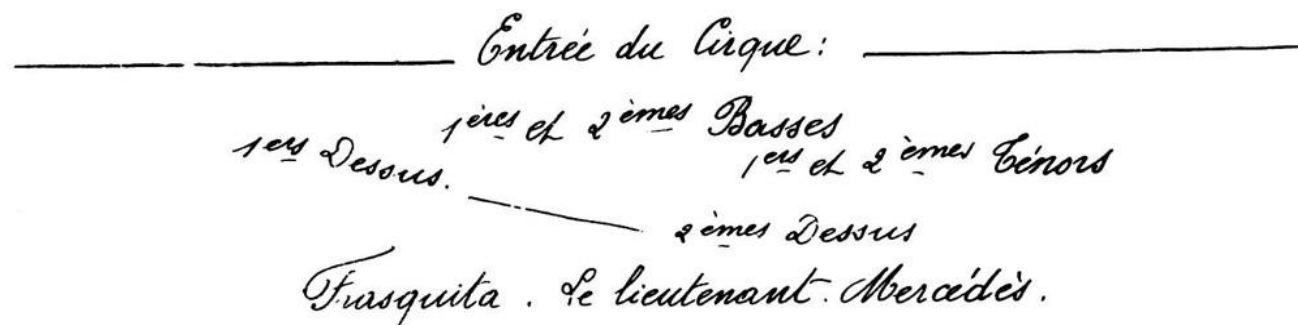 Entrée du Cirque:
1ères et 2èmes Basses
1ers Dessus.
1ers et 2èmes Ténors
2èmes Dessus
Frasquita. Le lieutenant. Mercédès.